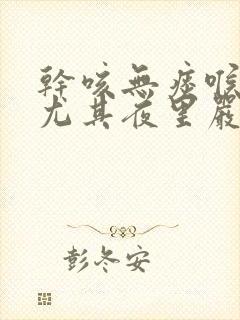 幹咳無痰喉
尤其夜里嚴
彭冬安